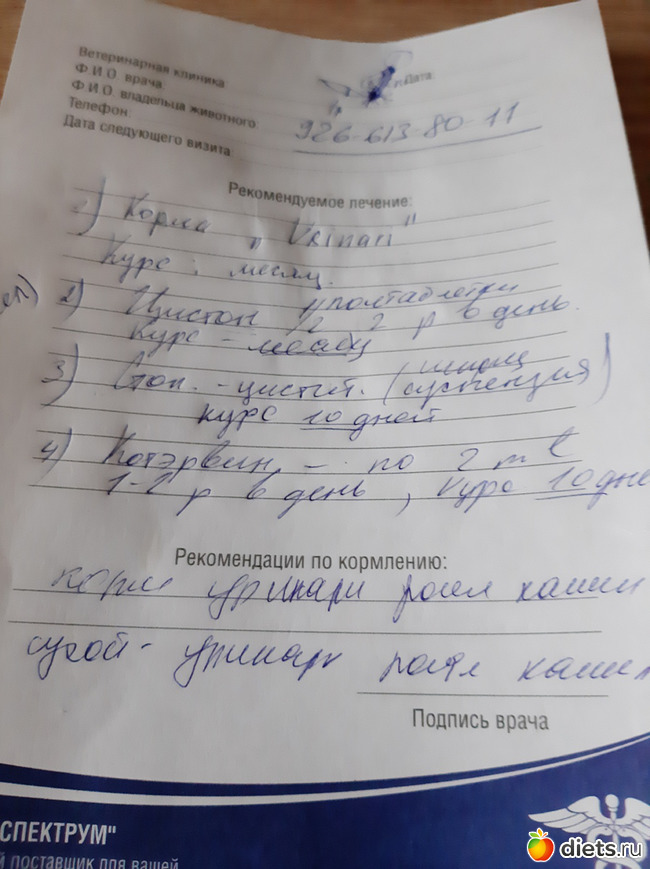 Ветеринарная клиника
Ф.И.О. врача
Дата
Ф.И.О. владельца животного
Телефон:
926-613-80-11
Дата следующего визита:
Рекомендуемое лечение:
1) Корма "Urinari"
Курс: месяц.
2) Цистон 1/2 полтаблетки 2 р в день.
Курс - месяц
3) Стоп. - цистит. (суспензия)
курс 10 дней
4) Котэрвин, - по 2 ml
1-2 р в день, курс 10 дне
Рекомендации по кормлению:
корм уринари роял канин
сухой - уринари роял канин
Подпись врача
СПЕКТРУМ"
й поставщик для вашей
diets.ru